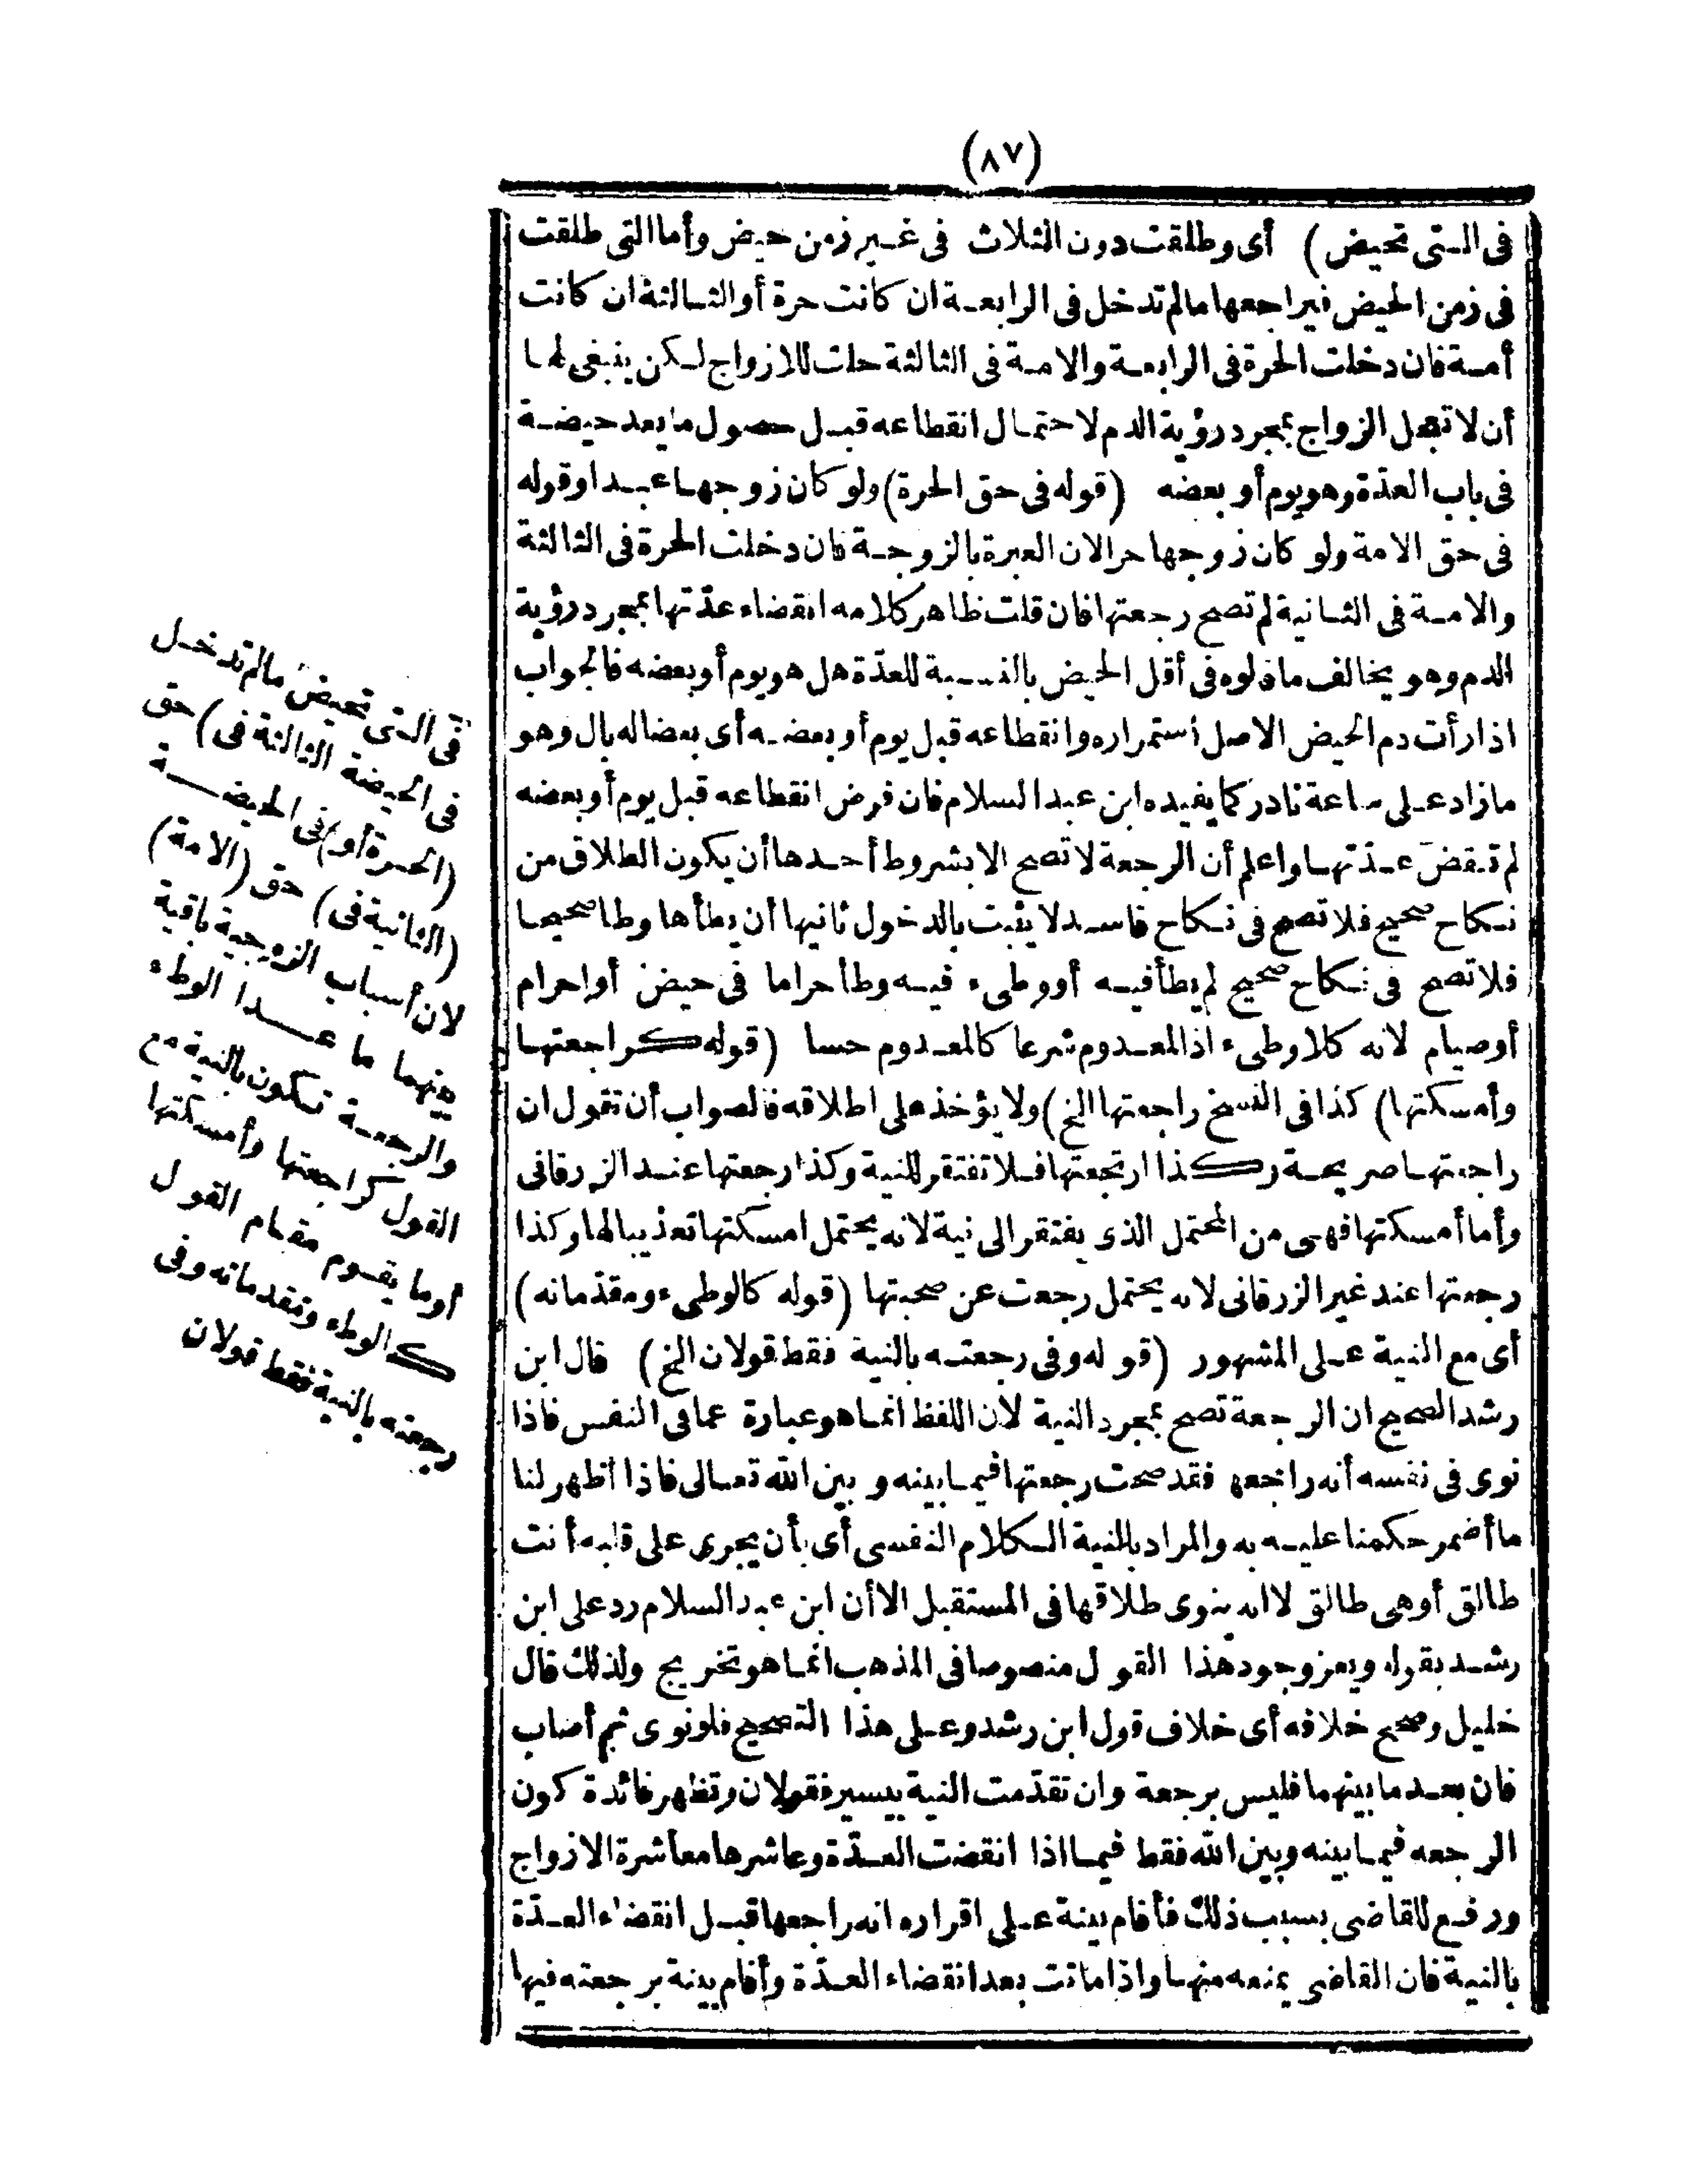 (٨٧)
فى التى تحيض) أى وطلقت دون الثلاث فى غير زمن حيض وأما التى طلقت
فى زمن الحيض فيراجعها مالم تدخل فى الرابعة ان كانت حرة أو الثالثة ان كانت
أمة فان دخلت الحرة فى الرابعة والامة فى الثالثة حلت للازواج لكن ينبغى لها
أن لا تعجل الزواج بمجرد رؤية الدم لاحتمال انقطاعه قبل حصول ما يعد حيضة
فى باب العدّة وهو يوم أو بعضه (قوله فى حق الحرة) ولو كان زوجها عبدا وقوله
فى حق الامة ولو كان زوجها حرا لان العبرة بالزوجة فان دخلت الحرة فى الثالثة
والامة فى الثانية لم تصح رجعتها فان قلت ظاهر كلامه انقضاء عدّتها بمجرد رؤية
الدم وهو يخالف ما قالوه فى أقل الحيض بالنسبة للعدّة هل هو يوم أو بعضه فالجواب
اذا رأت دم الحيض الاصل استمراره وانقطاعه قبل يوم أو بعضه أى بعضا له بال وهو
ما زاد على ساعة نادر كما يفيده ابن عبد السلام فان فرض انقطاعه قبل يوم أو بعضه
لم تنقض عدّتها واعلم أن الرجعة لا تصح الا بشروط أحدها أن يكون الطلاق من
نكاح صحيح فلا تصح فى نكاح فاسد لا يثبت بالدخول ثانيها أن يطأها وطأ صحيحا
فلا تصح فى نكاح صحيح لم يطأ فيه أو وطىء فيه وطأ حراما فى حيض أو احرام
أو صيام لانه كلا وطىء اذ المعدوم شرعا كالمعدوم حسا (قوله كراجعتها
وأمسكتها) كذا فى النسخ راجعتها الخ) ولا يؤخذ على اطلاقه فالصواب أن تقول ان
راجعتها صريحة وكذا ارتجعتها فلا تفتقر للنية وكذا رجعتها عند الزرقانى
وأما أمسكتها فهى من المحتمل الذى يفتقر الى نية لانه يحتمل امسكتها تعذيبا لها وكذا
رجعتها عند غير الزرقانى لانه يحتمل رجعت عن صحبتها (قوله كالوطىء ومقدّماته)
أى مع النية على المشهور (قوله وفى رجعته بالنية فقط قولان الخ) قال ابن
رشد الصحيح ان الرجعة تصح بمجرد النية لان اللفظ انما هو عبارة عما فى النفس فاذا
نوى فى نفسه أنه راجعها فقد صحت رجعتها فيما بينه وبين الله تعالى فاذا أظهر لنا
ما أضمر حكمنا عليه به والمراد بالنية الكلام النفسى أى بأن يجرى على قلبه أنت
طالق أو هى طالق لا انه ينوى طلاقها فى المستقبل الا أن ابن عبد السلام رد على ابن
رشد بقوله ويعز وجود هذا القول منصوصا فى المذهب انما هو تخريج ولذلك قال
خليل وصحح خلافه أى خلاف قول ابن رشد وعلى هذا التصحيح فلو نوى ثم أصاب
فان بعد ما بينهما فليس برجعة وان تقدّمت النية بيسير فقولان وتظهر فائدة كون
الرجعه فيما بينه وبين الله فقط فيما اذا انقضت العدّة وعاشرها معاشرة الازواج
ورفع للقاضى بسبب ذلك فأقام بينة على اقراره انه راجعها قبل انقضاء العدّة
بالنية فان القاضى يمنعه منها واذا ماتت بعد انقضاء العدّة وأقام بينة برجعته فيها
فى التى تحيض مالم تدخل
فى الحيضة الثالثة فى) حق
(الحرة أو) فى الحيضة
(الثانية فى) حق (الامة)
لان أسباب الزوجية باقية
بينهما ما عدا الوطء
والرجعة تكون بالنية مع
القول كراجعتها وأمسكتها
أو ما يقوم مقام القول
كالوطء ومقدماته وفى
رجعته بالنية فقط قولان